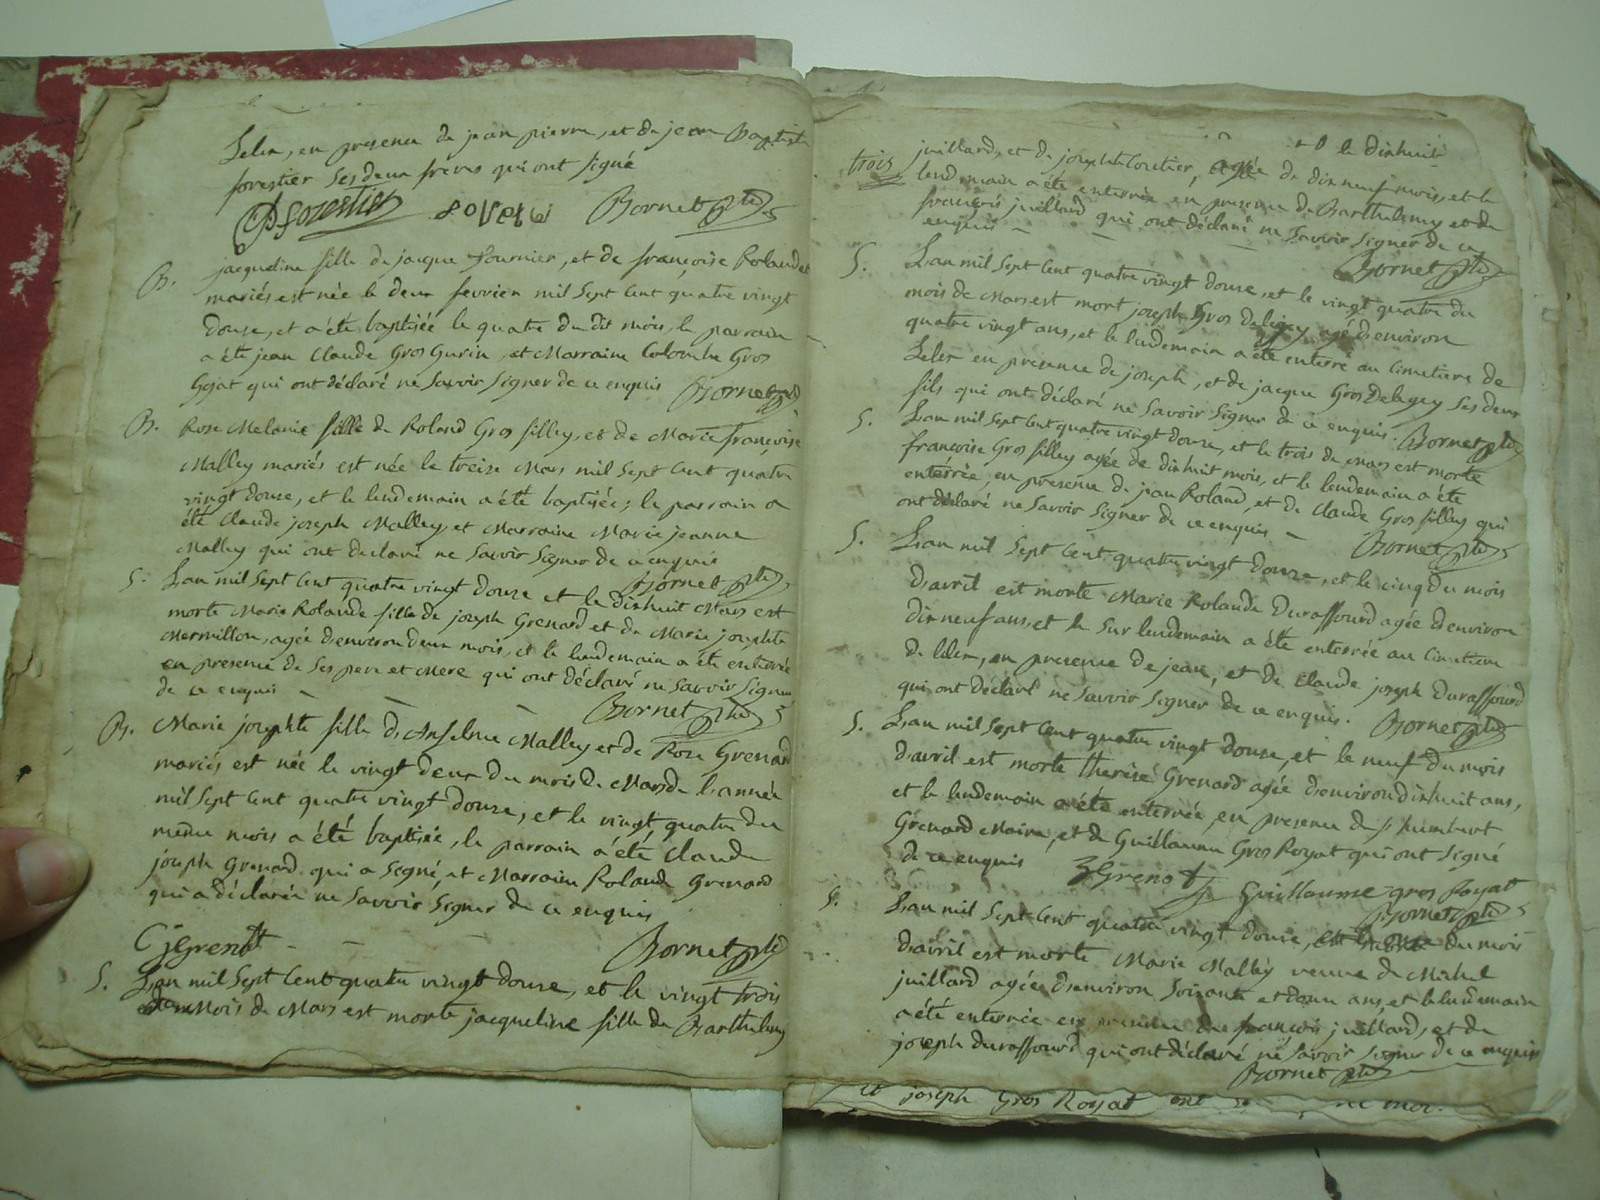 Lelex, en presence de jean pierre, et de jean Baptiste
forestier Ses deux fréres qui ont signé
forestier Bornet ptre
B. jacqueline fille de jacque fournier, et de françoise Rolandet
mariés est née le deux fevrier mil Sept Cent quatre vingt
douze, et a été baptisée le quatre du dit mois, le parrain
a été jean Claude Gros Gurin, et Marraine Colombe Gros
Gojat qui ont déclaré ne Savoir Signer de ce enquis Bornet ptre
B. Rose Melanie fille de Roland Gros filley, et de Marie françoise
Malley mariés est née le treize Mars mil Sept Cent quatre
vingt douze, et le lendemain a été baptisée; le parrain a
été Claude joseph Malley, et Marraine Marie jeanne
Malley qui ont declaré ne Savoir Signer de ce enquis
Bornet ptre
S. L'an mil Sept Cent quatre vingt douze et le dixhuit Mars est
morte Marie Rolande fille de joseph Grenard et de Marie josephte
Mermillon, agée d'environ deux mois, et le lendemain a été enterrée
en presence de Ses pere et Mere qui ont déclaré ne Savoir Signer
de ce enquis Bornet ptre
B. Marie josephte fille d'Anselme Malley et de Roze Grenard
mariés est née le vingt deux du mois de Mars de l'année
mil Sept Cent quatre vingt douze, et le vingt quatre du
même mois a été baptisée, le parrain a été Claude
joseph Grenard qui a Signé, et Marraine Rolande Grenard
qui a déclarée ne Savoir Signer de ce enquis
CjGrenot Bornet ptre
S. L'an mil Sept Cent quatre vingt douze, et le vingt trois
du Mois de Mars est morte jacqueline fille de Barthelemy
le dixhuit
juillard, et de josephte Coutier, agée de dix neuf mois, et le
trois
lendemain a été enterrée en presence de Barthelemy et de
françois juillard qui ont déclaré ne Savoir Signer de ce
enquis Bornet ptre
S. L'an mil Sept Cent quatre vingt douze, et le vingt quatre du
mois de Mars est mort joseph Gros Delegey agé d'environ
quatre vingt ans, et le lendemain a été enterré au Cimetiere de
Lelex en presence de joseph, et de jacque Gros Delegey Ses deux
fils qui ont déclaré ne Savoir Signer de ce enquis. Bornet ptre
S. L'an mil Sept Cent quatre vingt douze, et le trois de Mars est morte
françoise Gros filley agée de dixhuit mois, et le lendemain a été
enterrée, en presence de jean Roland, et de Claude Gros filley qui
ont déclaré ne Savoir Signer de ce enquis Bornet ptre
S. L'an mil Sept Cent quatre vingt douze, et le cinq du mois
d'avril est morte Marie Rolande Duraffourd agée d'environ
dix neuf ans, et le Sur lendemain a été enterrée au Cimetiere
de lelex, en presence de jean, et de Claude joseph Duraffourd
qui ont déclaré ne Savoir Signer de ce enquis. Bornet ptre
S. L'an mil Sept Cent quatre vingt douze, et le neuf du mois
d'avril est morte therese Grenard agée d'environ dixhuit ans,
et le lendemain a été enterrée, en presence de Humbert
Grenard Maire, et de Guillaume Gros Royat qui ont Signé
de ce enquis Grenot Guillaume gros Royat
Bornet ptre
S. L'an mil Sept Cent quatre vingt douze, du mois
d'avril est morte Marie Malley veuve de Michel
juillard agée d'environ Soixante et douze ans, et le lendemain
a été enterrée en presence de françois juillard, et de
joseph duraffourd qui ont déclaré ne Savoir Signer de ce enquis
Bornet ptre
et joseph Gros Royat ont